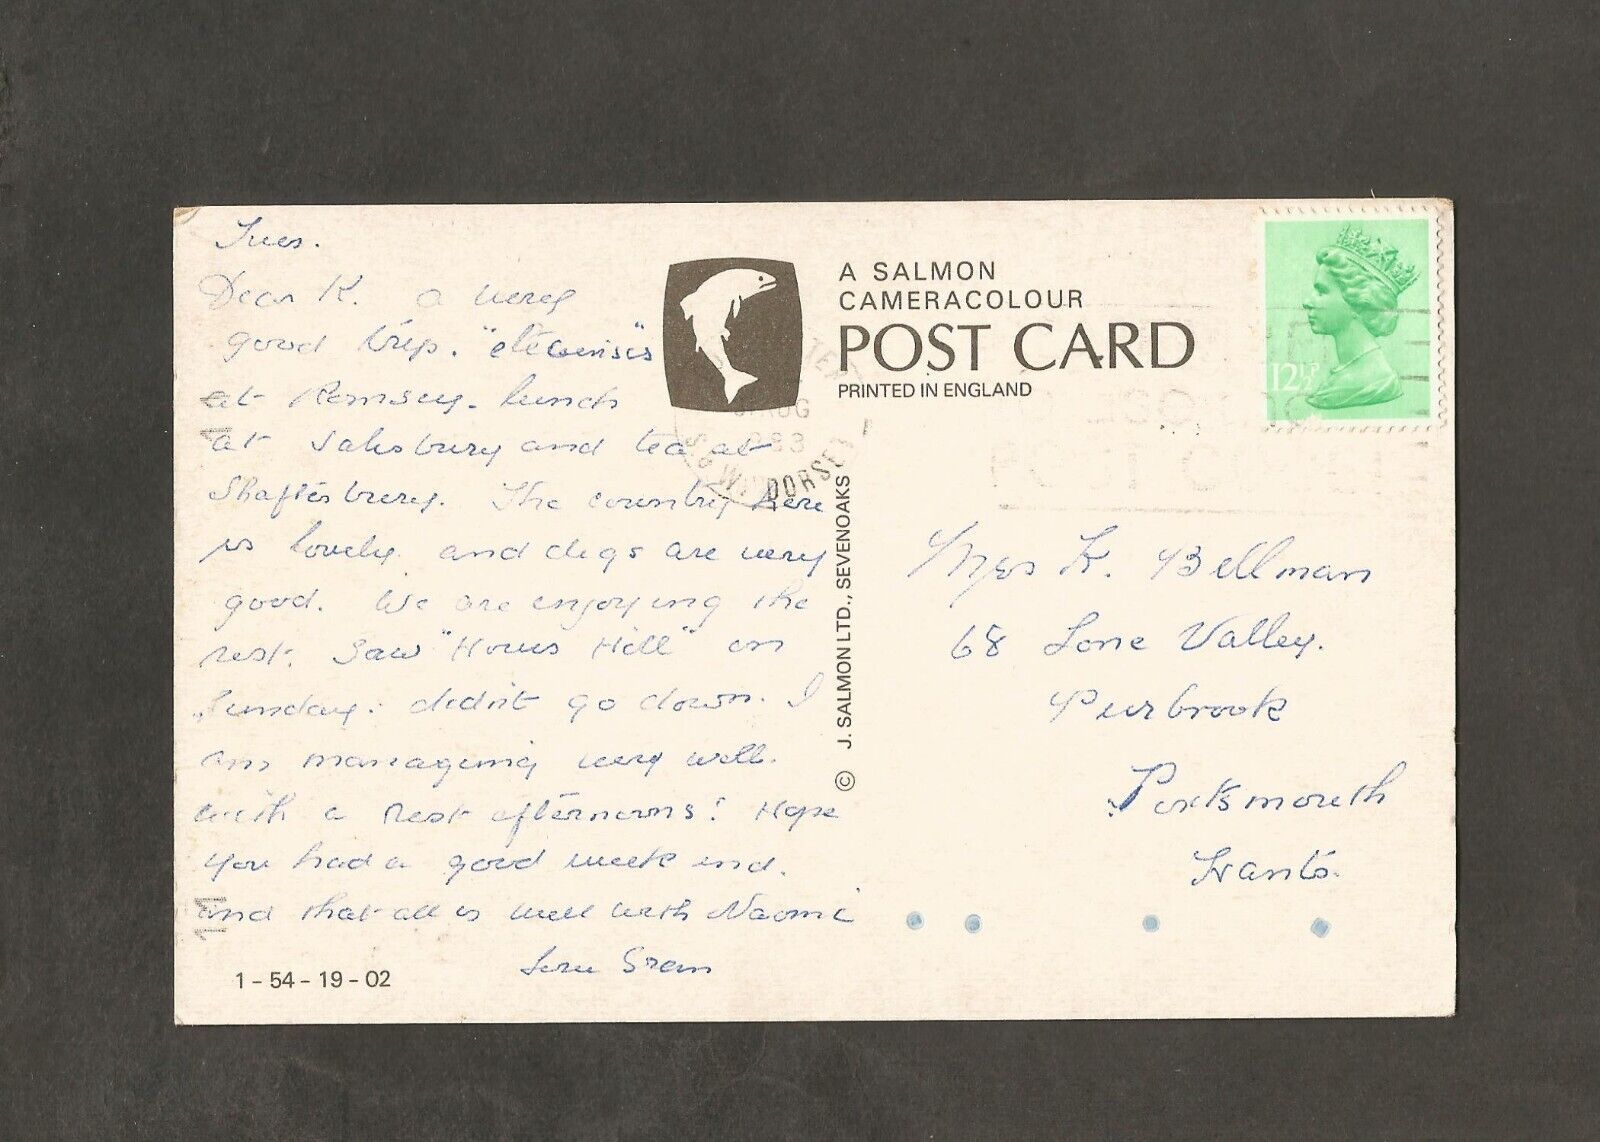 Tues.
Dear K. a very
good trip. "elevenses"
at Romsey. lunch
at Salisbury and tea at
Shaftesbury. The country here
is lovely and digs are very
good. We are enjoying the
rest. Saw "Hours Hill" on
Sunday. didn't go down. I
am managing very well.
with a rest afternoons! Hope
you had a good week end.
and that all is well with Naomi
Love Gran
1-54-19-02
A SALMON
CAMERACOLOUR
POST CARD
PRINTED IN ENGLAND
AUG
983
DORSET
© J. SALMON LTD., SEVENOAKS
12½P
Mrs K. Bellman
68 Lone Valley.
Purbrook
Portsmouth
Hants.